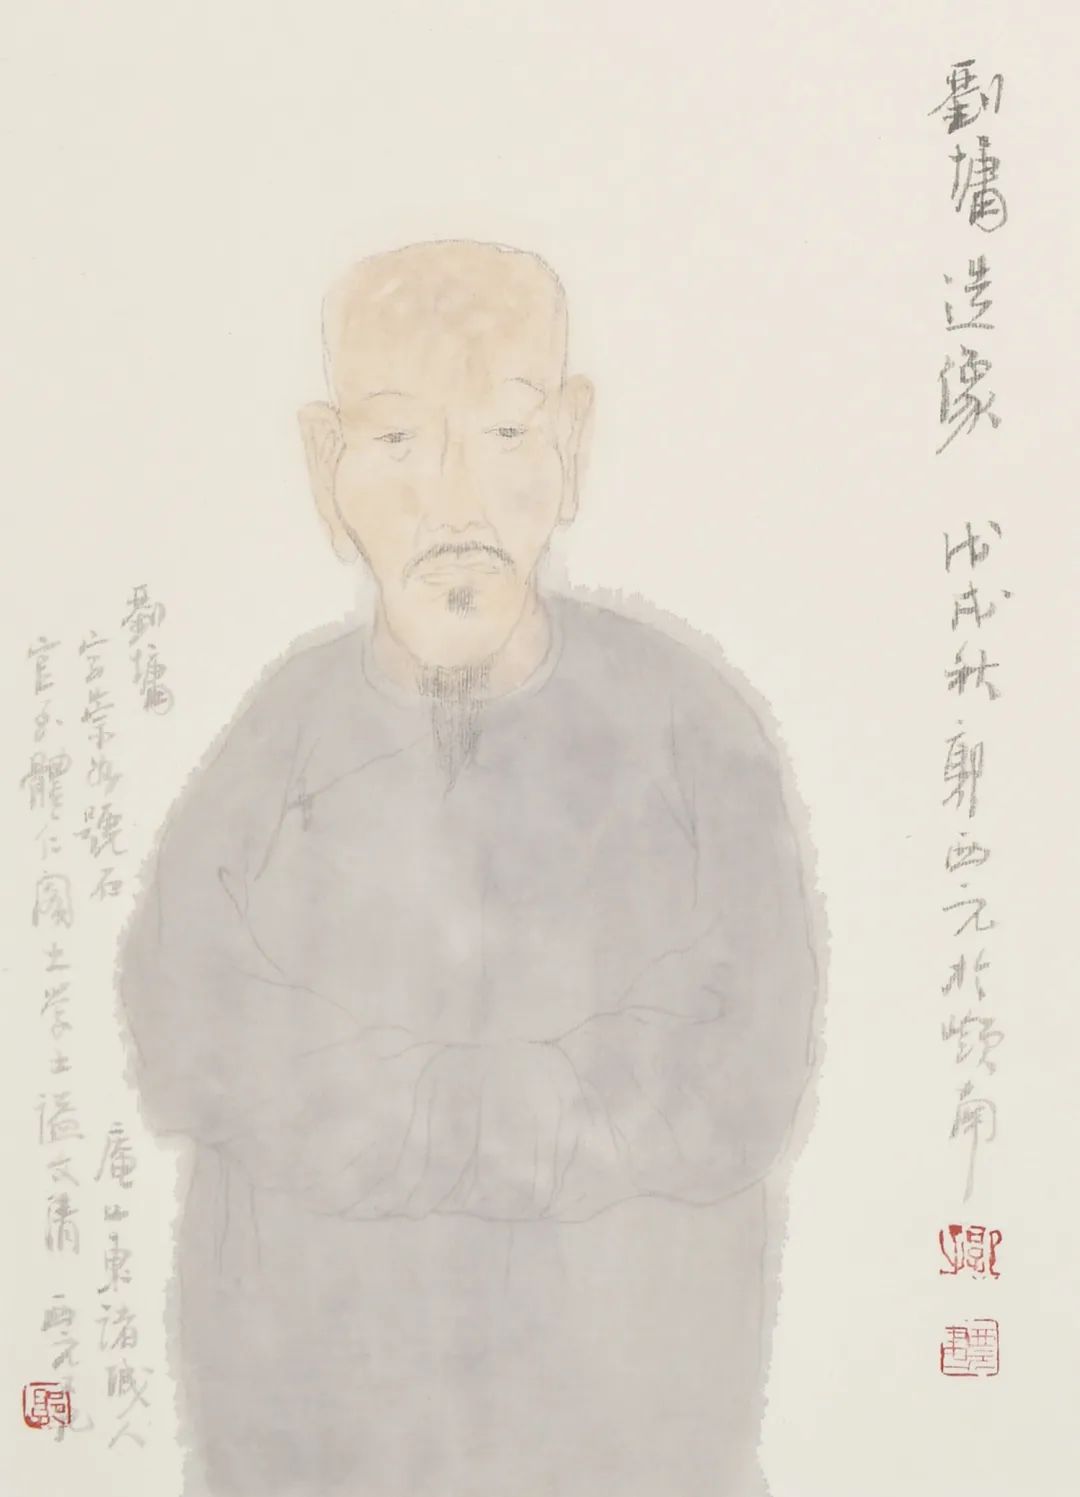 劉墉造像 戊戌秋 郭西元於嶺南
劉墉
字崇如號石庵 山東諸城人
官至體仁閣大学士謚文清 西元又記